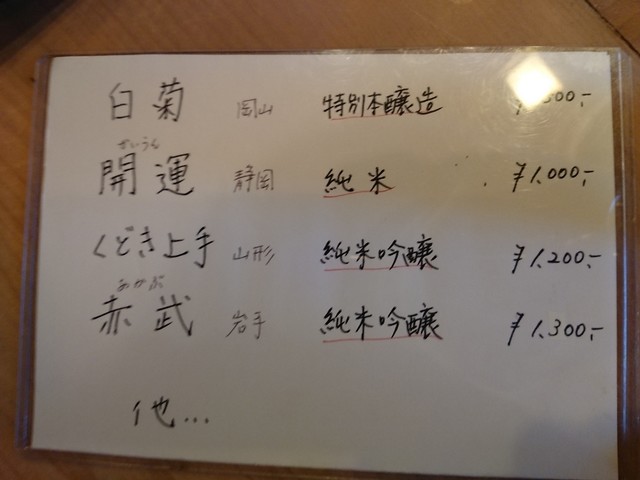 白菊 岡山 特別本醸造
かいうん
開運 静岡 純米 ¥1.000-
くどき上手 山形 純米吟醸 ¥1.200-
あかぶ
赤武 岩手 純米吟醸 ¥1.300-
他...